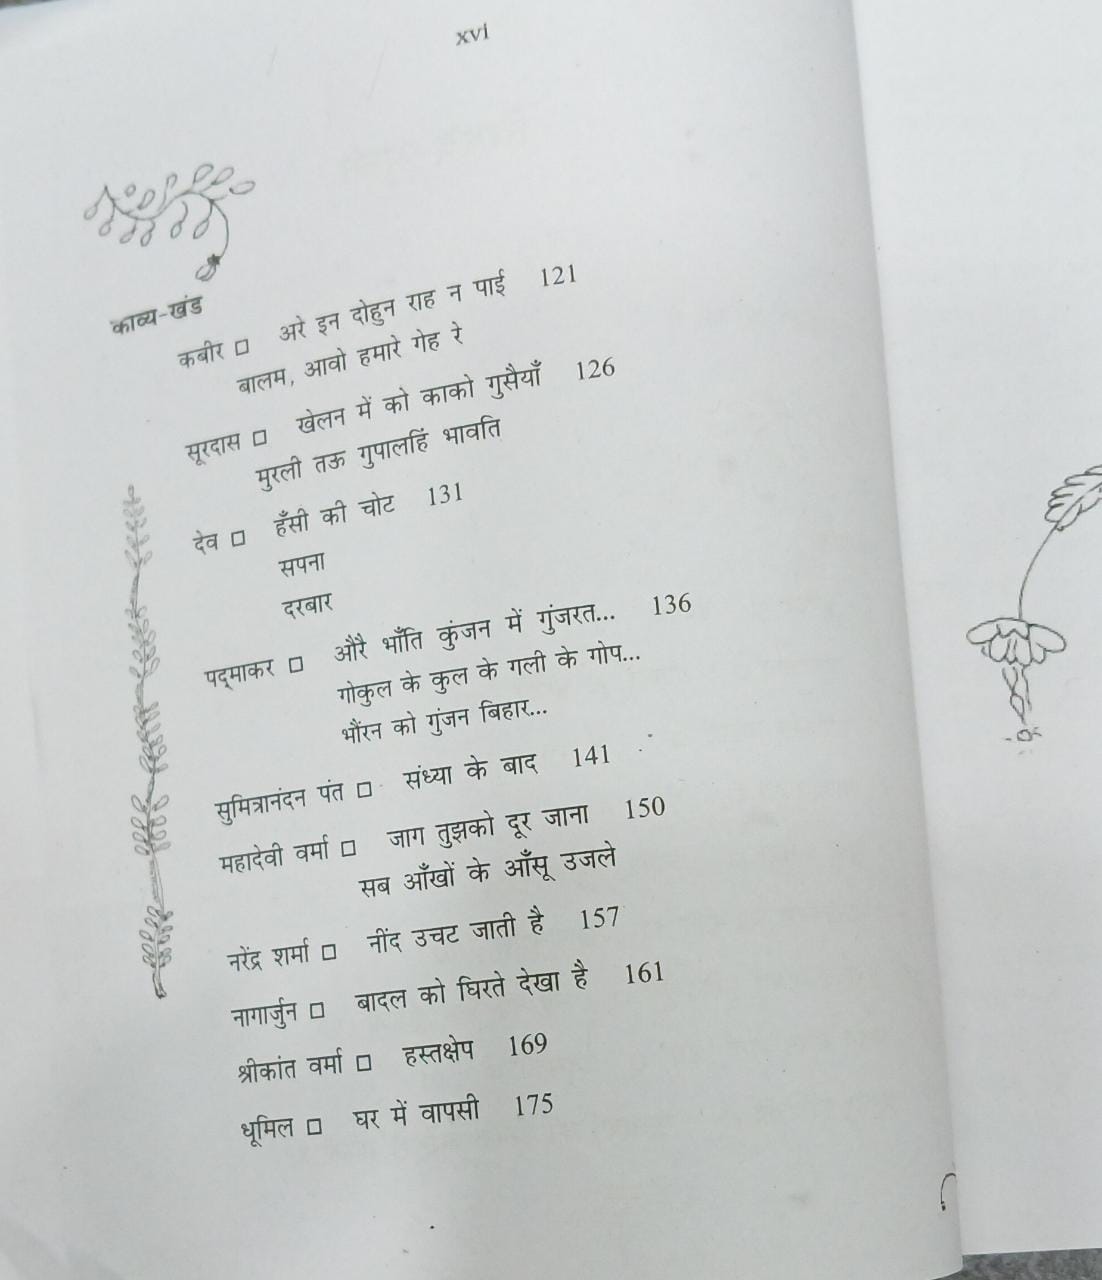 xvi
काव्य-खंड
कबीर □ अरे इन दोहुन राह न पाई 121
बालम, आवो हमारे गेह रे
सूरदास □ खेलन में को काको गुसैयाँ 126
मुरली तऊ गुपालहिं भावति
देव □ हँसी की चोट 131
सपना
दरबार
पद्माकर □ औरै भाँति कुंजन में गुंजरत... 136
गोकुल के कुल के गली के गोप...
भौंरन को गुंजन बिहार...
सुमित्रानंदन पंत □ संध्या के बाद 141
महादेवी वर्मा □ जाग तुझको दूर जाना 150
सब आँखों के आँसू उजले
नरेंद्र शर्मा □ नींद उचट जाती है 157
नागार्जुन □ बादल को घिरते देखा है 161
श्रीकांत वर्मा □ हस्तक्षेप 169
धूमिल □ घर में वापसी 175